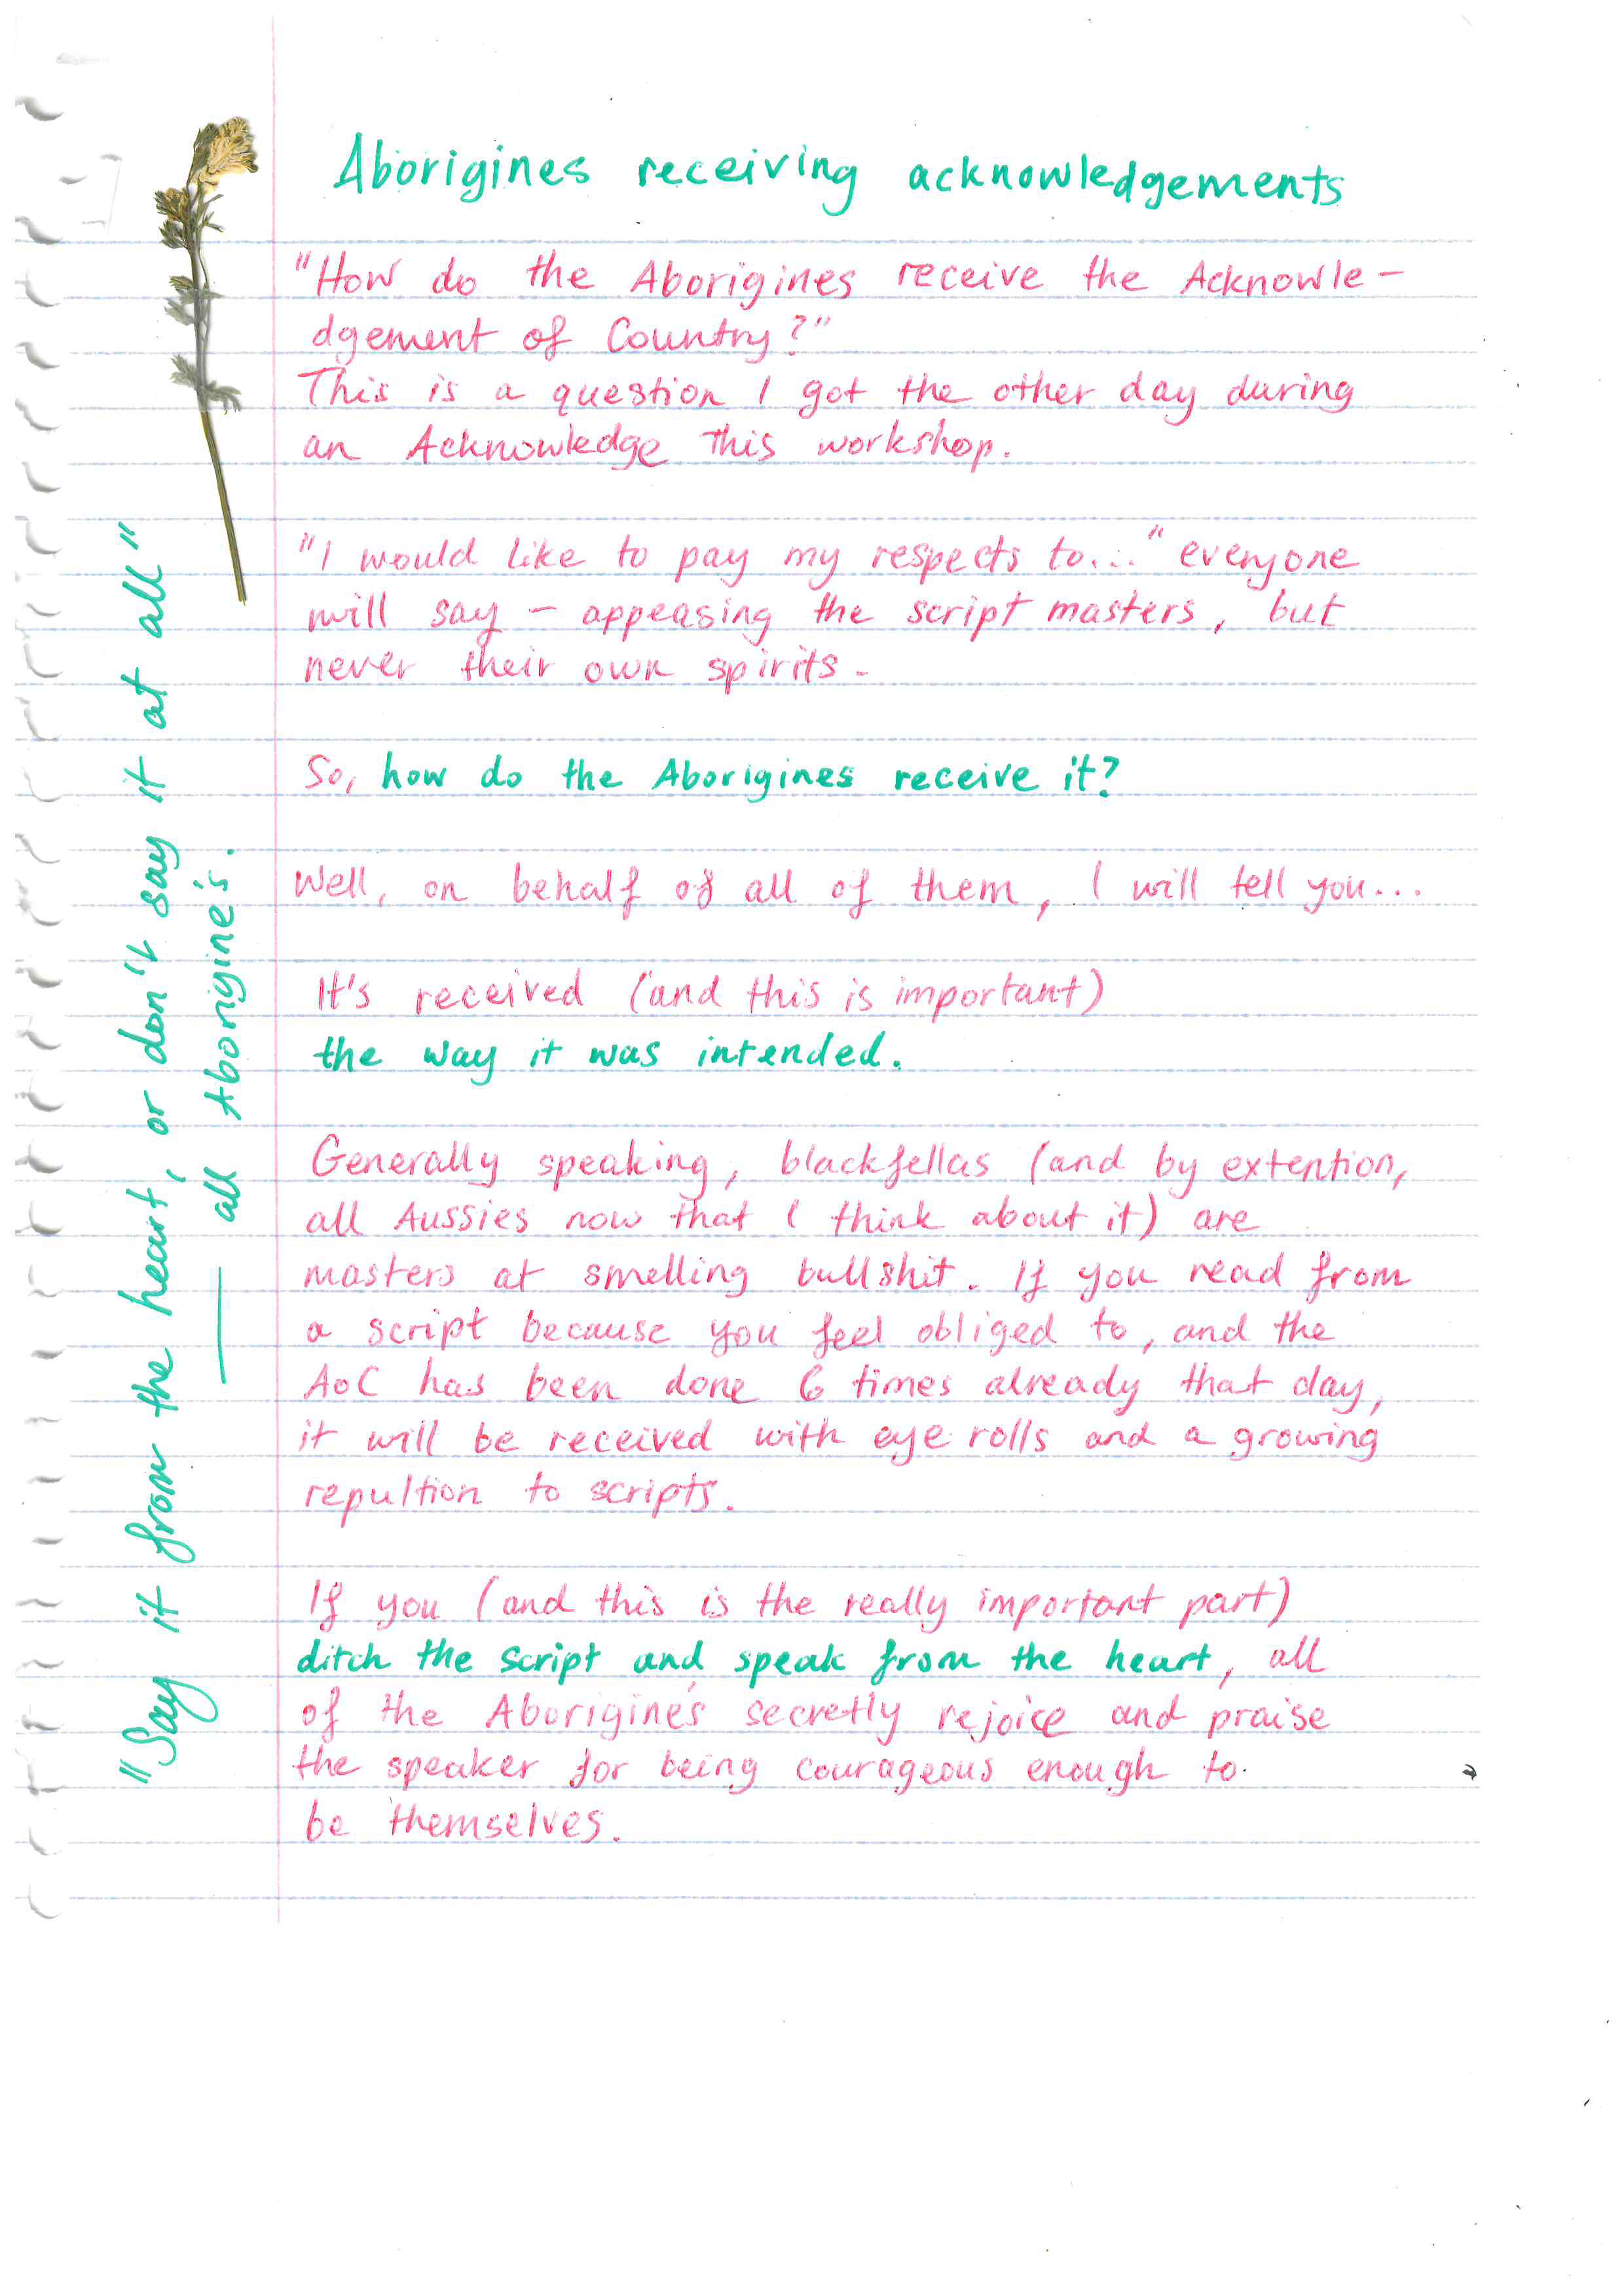 Aborigines receiving acknowledgements
"How do the Aborigines receive the Acknowle-
dgement of Country?"
This is a question I got the other day during
an Acknowledge This workshop.
"I would like to pay my respects to..." everyone
will say - appeasing the script masters, but
never their own spirits.
So, how do the Aborigines receive it?
Well, on behalf of all of them, I will tell you...
It's received (and this is important)
the way it was intended.
Generally speaking, blackfellas (and by extention,
all Aussies now that I think about it) are
masters at smelling bullshit. If you read from
a script because you feel obliged to, and the
AoC has been done 6 times already that day,
it will be received with eye rolls and a growing
repultion to scripts.
If you (and this is the really important part)
ditch the script and speak from the heart, all
of the Aborigine's secretly rejoice and praise
the speaker for being courageous enough to
be themselves.
"Say it from the heart, or don't say it at all"
— all Aborigine's.